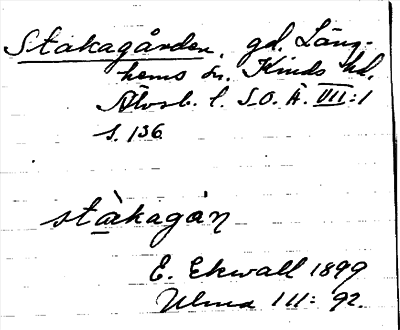 Stakagården, gd. Läng-
hems sn. Kinds hd.
Älvsb. l. S.O.Ä. VII:1
s. 136
stàkagáņ
E. Ekwall 1899
Ulma 111: 92.